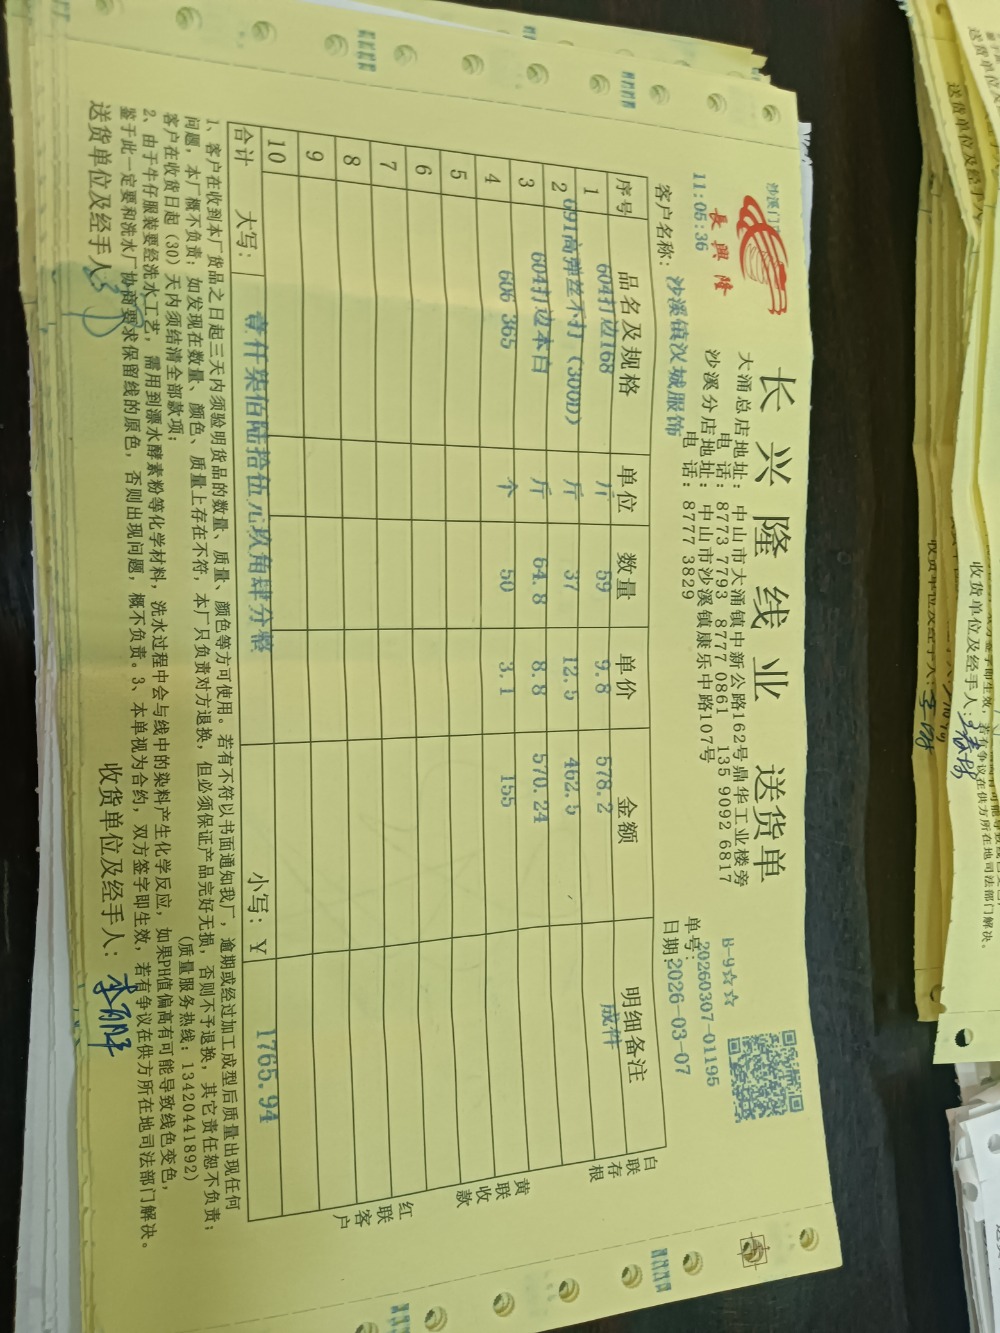 长兴隆线业 送货单
沙溪门市
11:05:36
長興隆
大涌总店地址：中山市大涌镇中新公路162号鼎华工业楼旁
电 话：8773 7793 8777 0861 135 9092 6817
沙溪分店地址：中山市沙溪镇康乐中路107号
电 话：8777 3829
B-9☆☆
单号：20260307-01195
日期：2026-03-07
客户名称：沙溪镇汉城服饰
序号 品名及规格 单位 数量 单价 金额 明细备注
1 604打边168 斤 59 9.8 578.2 成件
2 691高弹丝不打（300D） 斤 37 12.5 462.5
3 604打边本白 斤 64.8 8.8 570.24
4 606 365 个 50 3.1 155
5
6
7
8
9
10
合计 大写：壹仟柒佰陆拾伍元玖角肆分整 小写：￥ 1765.94
白联存根
黄联收款
红联客户
1、客户在收到本厂货品之日起三天内须验明货品的数量、质量、颜色等方可使用。若有不符以书面通知我厂，逾期或经过加工成型后质量出现任何
问题，本厂概不负责；如发现在数量、颜色、质量上存在不符，本厂只负责对方退换，但必须保证产品完好无损，否则不予退换，其它责任恕不负责；
客户在收货日起（30）天内须结清全部款项； （质量服务热线：13420441892）
2、由于牛仔服装要经洗水工艺，需用到漂水酵素粉等化学材料，洗水过程中会与线中的染料产生化学反应，如果PH值偏高有可能导致线色变色，
鉴于此一定要和洗水厂协商要求保留线的原色，否则出现问题，概不负责。3、本单视为合约，双方签字即生效，若有争议在供方所在地司法部门解决。
送货单位及经手人： 收货单位及经手人：
送货单位及经手人
收货单位及经手人：